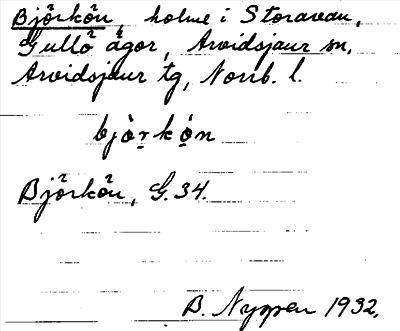 Björkön, holme i Storavan,
Gullö ägor, Arvidsjaur sn,
Arvidsjaur tg, Norrb. l.
bjò̱rkò̱n
Björkön, G.34.
B. Nyppen 1932.